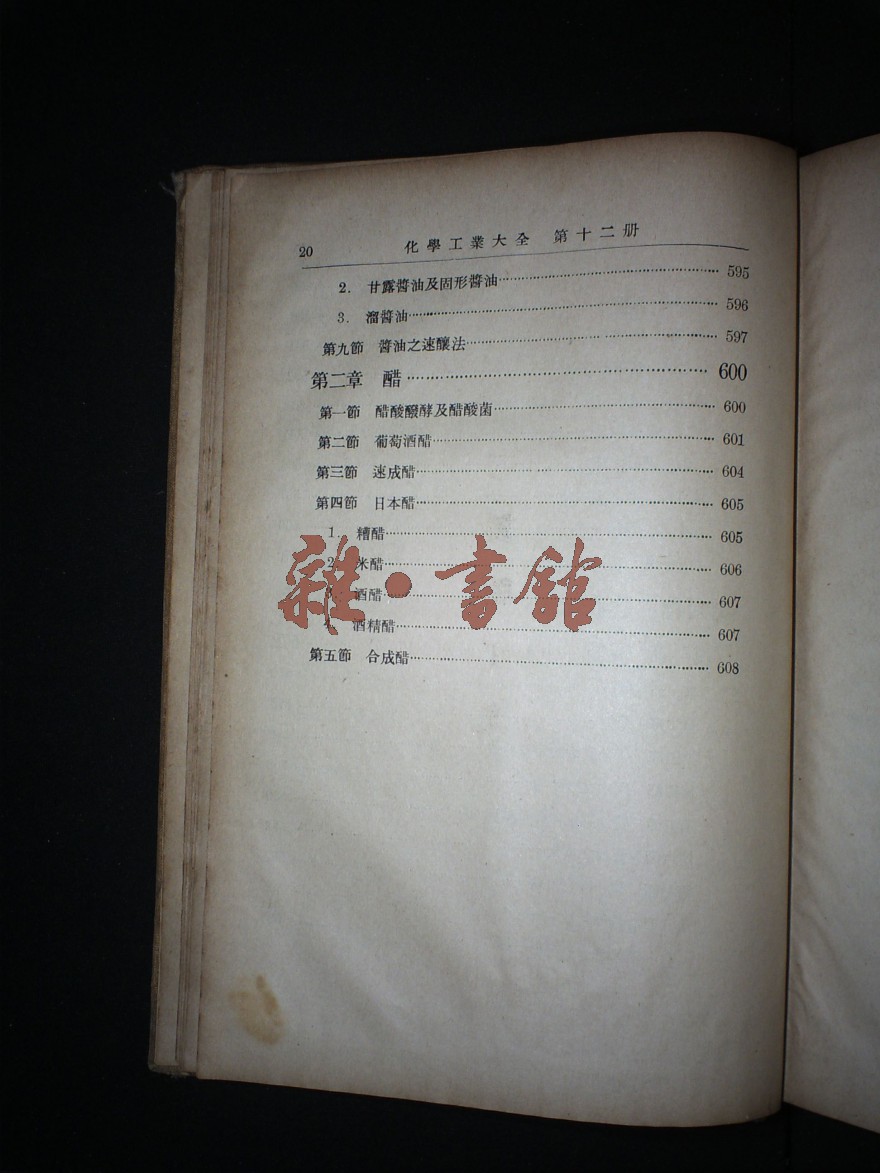 20 化學工業大全 第十二册
2. 甘露醬油及固形醬油 595
3. 溜醬油 596
第九節 醬油之速釀法 597
第二章 醋 600
第一節 醋酸醱酵及醋酸菌 600
第二節 葡萄酒醋 601
第三節 速成醋 604
第四節 日本醋 605
1. 糟醋 605
2. 米醋 606
酒醋 607
酒精醋 607
第五節 合成醋 608
雜·書館